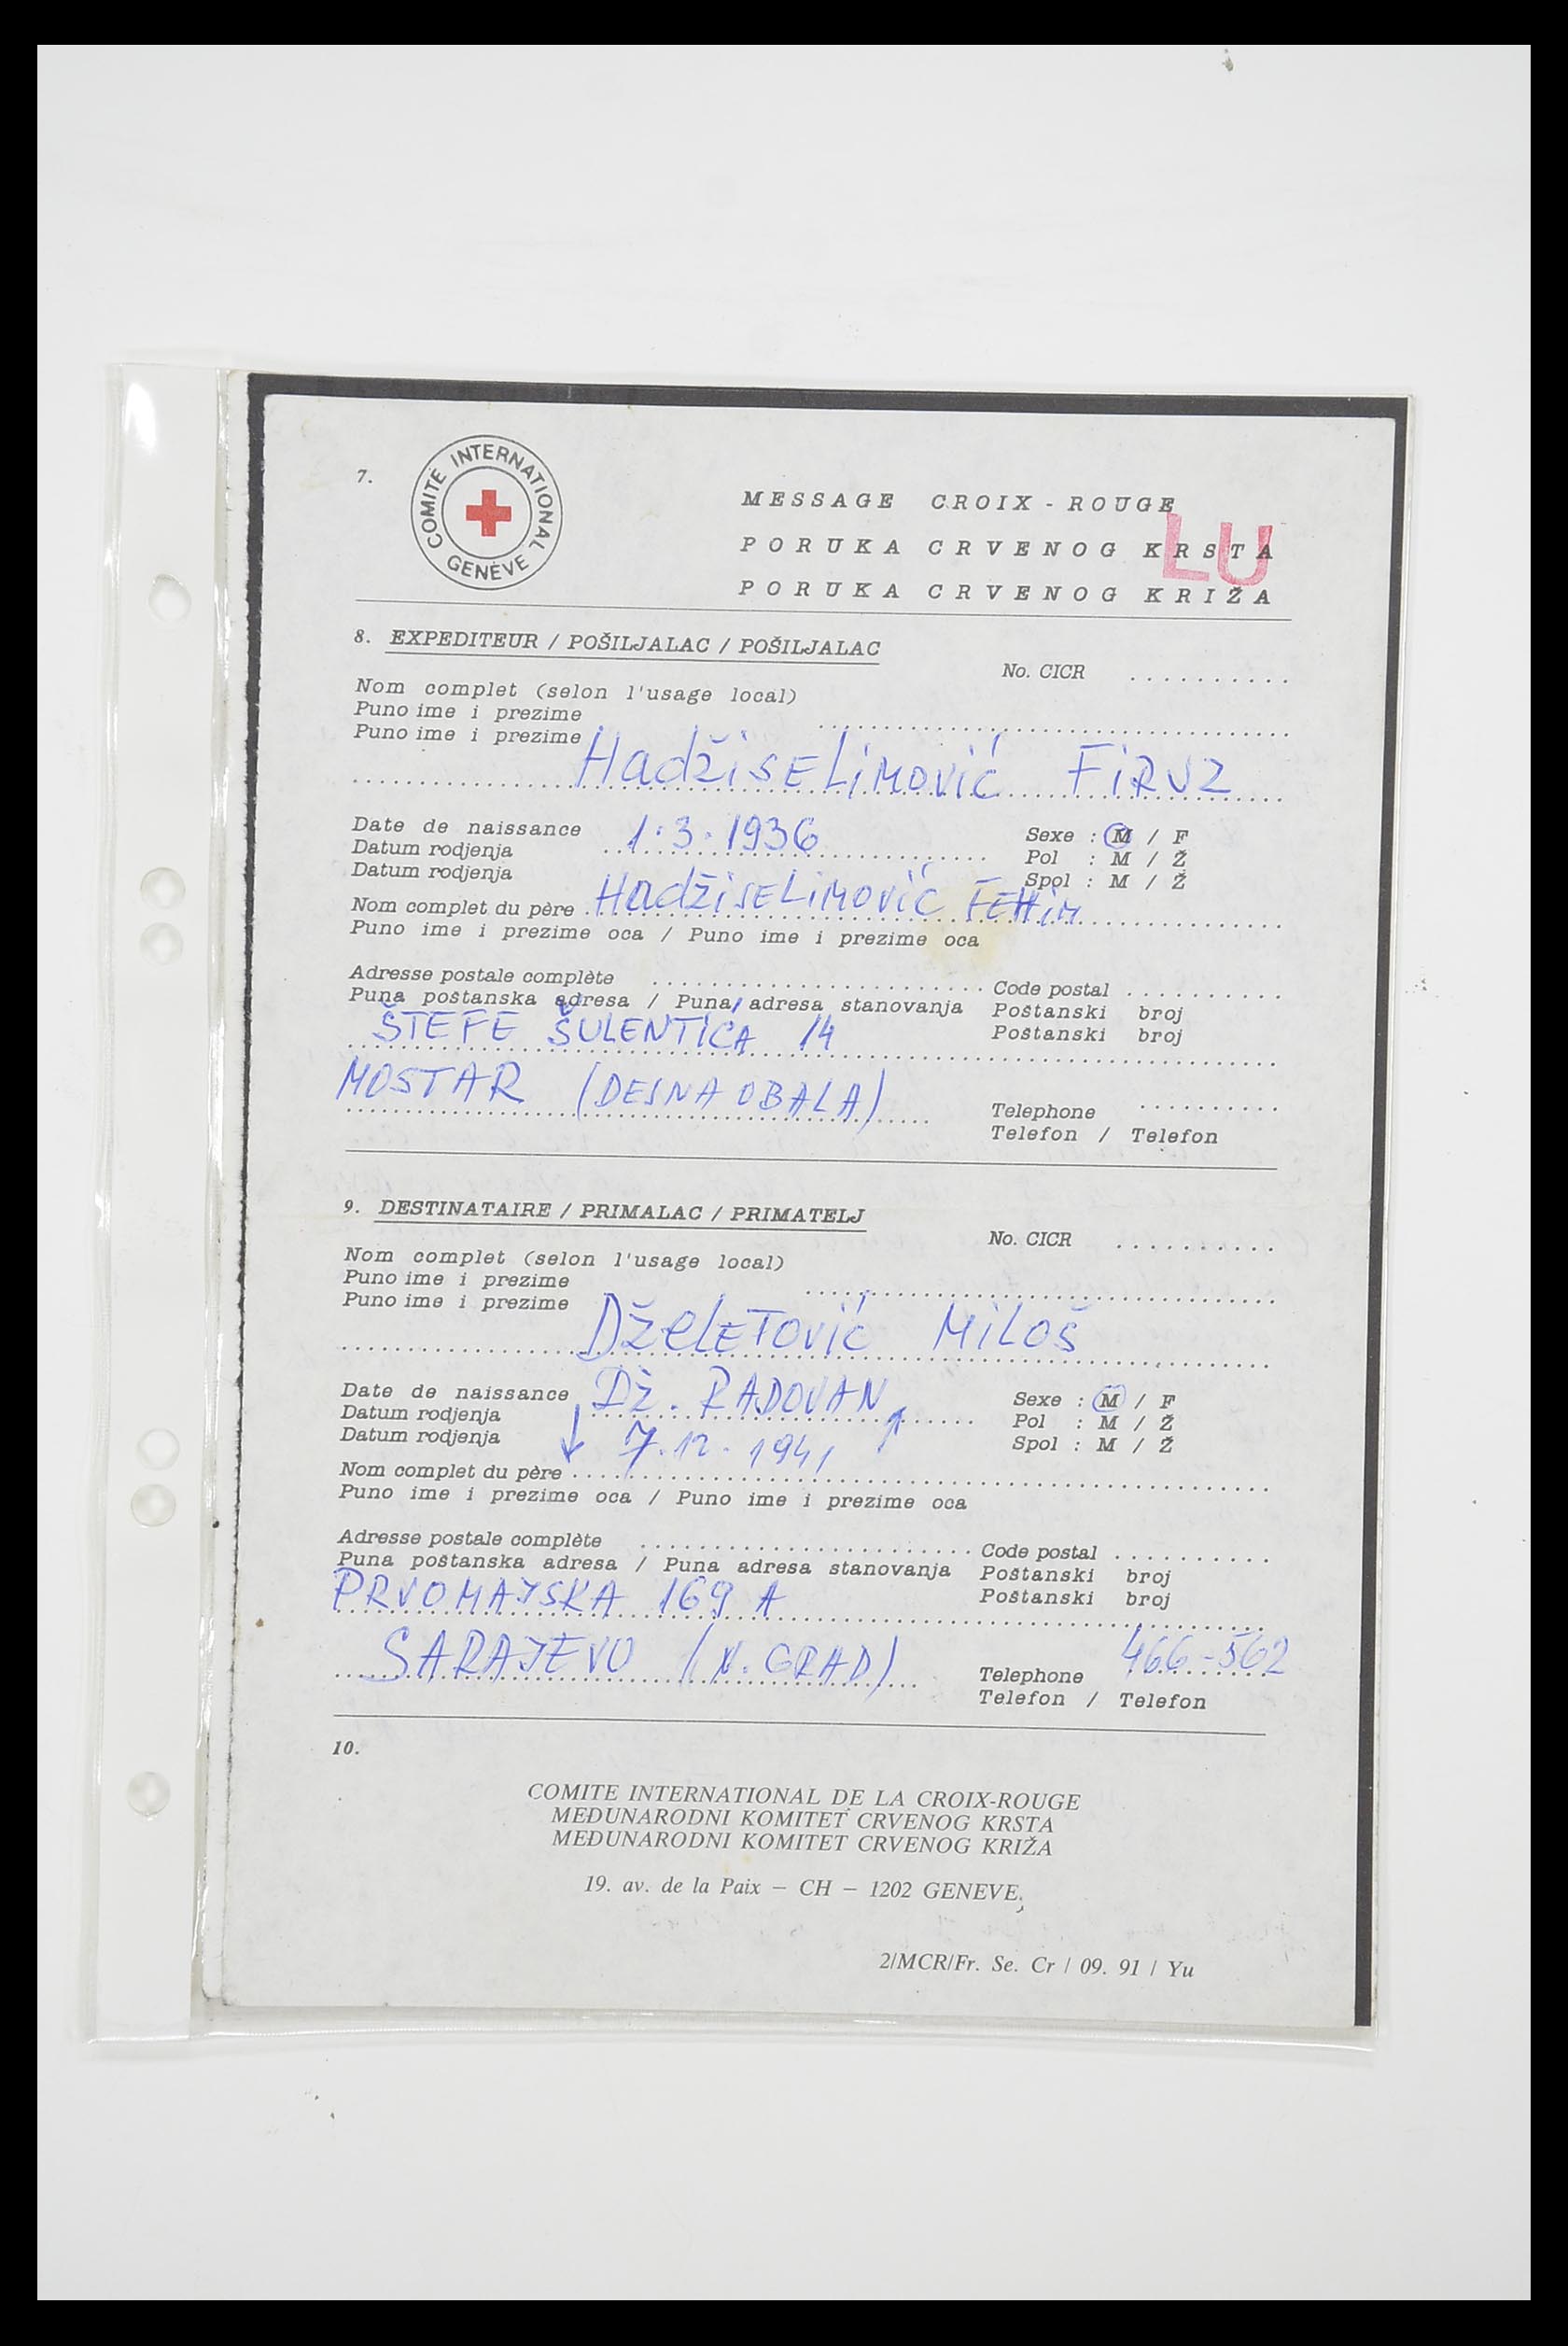 7.
COMITÉ INTERNATIONAL GENÈVE
MESSAGE CROIX-ROUGE
PORUKA CRVENOG KRSTA
LU
PORUKA CRVENOG KRIŽA
8. EXPEDITEUR / POŠILJALAC / POŠILJALAC
No. CICR ..........
Nom complet (selon l'usage local)
Puno ime i prezime
Puno ime i prezime
HadžiseLimović FiRUZ
Date de naissance 1.3.1936 Sexe : M / F
Datum rodjenja Pol : M / Ž
Datum rodjenja Spol : M / Ž
Nom complet du père HadžiseLimović FEHim
Puno ime i prezime oca / Puno ime i prezime oca
Adresse postale complète Code postal ..........
Puna poštanska adresa / Puna adresa stanovanja Poštanski broj
Poštanski broj
ŠTEFE ŠULENTIĆA 14
MOSTAR (DESNA OBALA)
Telephone ..........
Telefon / Telefon
9. DESTINATAIRE / PRIMALAC / PRIMATELJ
No. CICR ..........
Nom complet (selon l'usage local)
Puno ime i prezime
Puno ime i prezime
DželeTović MiLoš
Date de naissance Dž. RADOVAN Sexe : M / F
Datum rodjenja Pol : M / Ž
Datum rodjenja 7.12.1941 Spol : M / Ž
Nom complet du père
Puno ime i prezime oca / Puno ime i prezime oca
Adresse postale complète Code postal ..........
Puna poštanska adresa / Puna adresa stanovanja Poštanski broj
Poštanski broj
PRVOMAJSKA 169 A
SARAJEVO (N. GRAD)
Telephone 466-562
Telefon / Telefon
10.
COMITE INTERNATIONAL DE LA CROIX-ROUGE
MEĐUNARODNI KOMITET CRVENOG KRSTA
MEĐUNARODNI KOMITET CRVENOG KRIŽA
19. av. de la Paix – CH – 1202 GENEVE
2/MCR/Fr. Se. Cr / 09. 91 / Yu